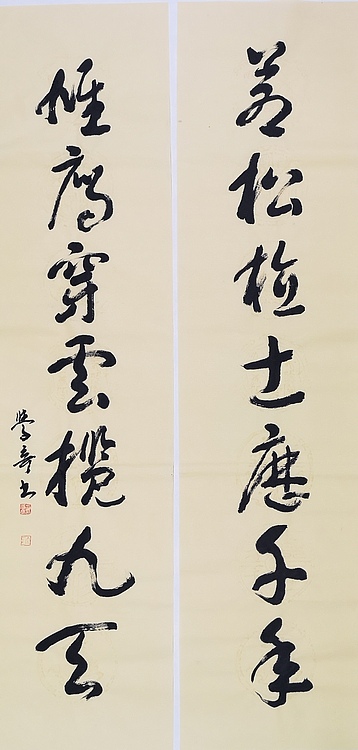 若松植土历千年
惟鹰穿云揽九天
学奇书